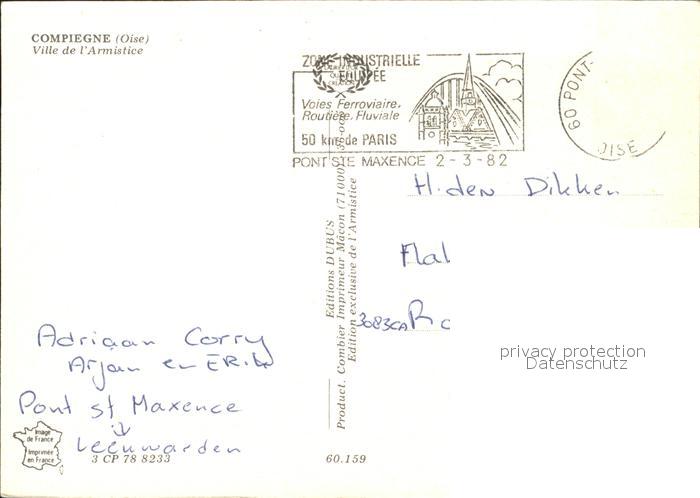 COMPIEGNE (Oise)
Ville de l'Armistice
ZONE INDUSTRIELLE
EQUIPÉE
Voies Ferroviaire,
Routière, Fluviale
50 km de PARIS
PONT STE MAXENCE 2-3-82
60 PONT-
OISE
H. den Dikken
Flat
3083CA R
privacy protection
Datenschutz
Editions DUBUS
Product. Combier Imprimeur Mâcon (71000)
Edition exclusive de l'Armistice
Adriaan Corry
Arjan en ERik
Pont st Maxence
↓
Leeuwarden
Image
de France
Imprimée
en France
3 CP 78 8233
60.159